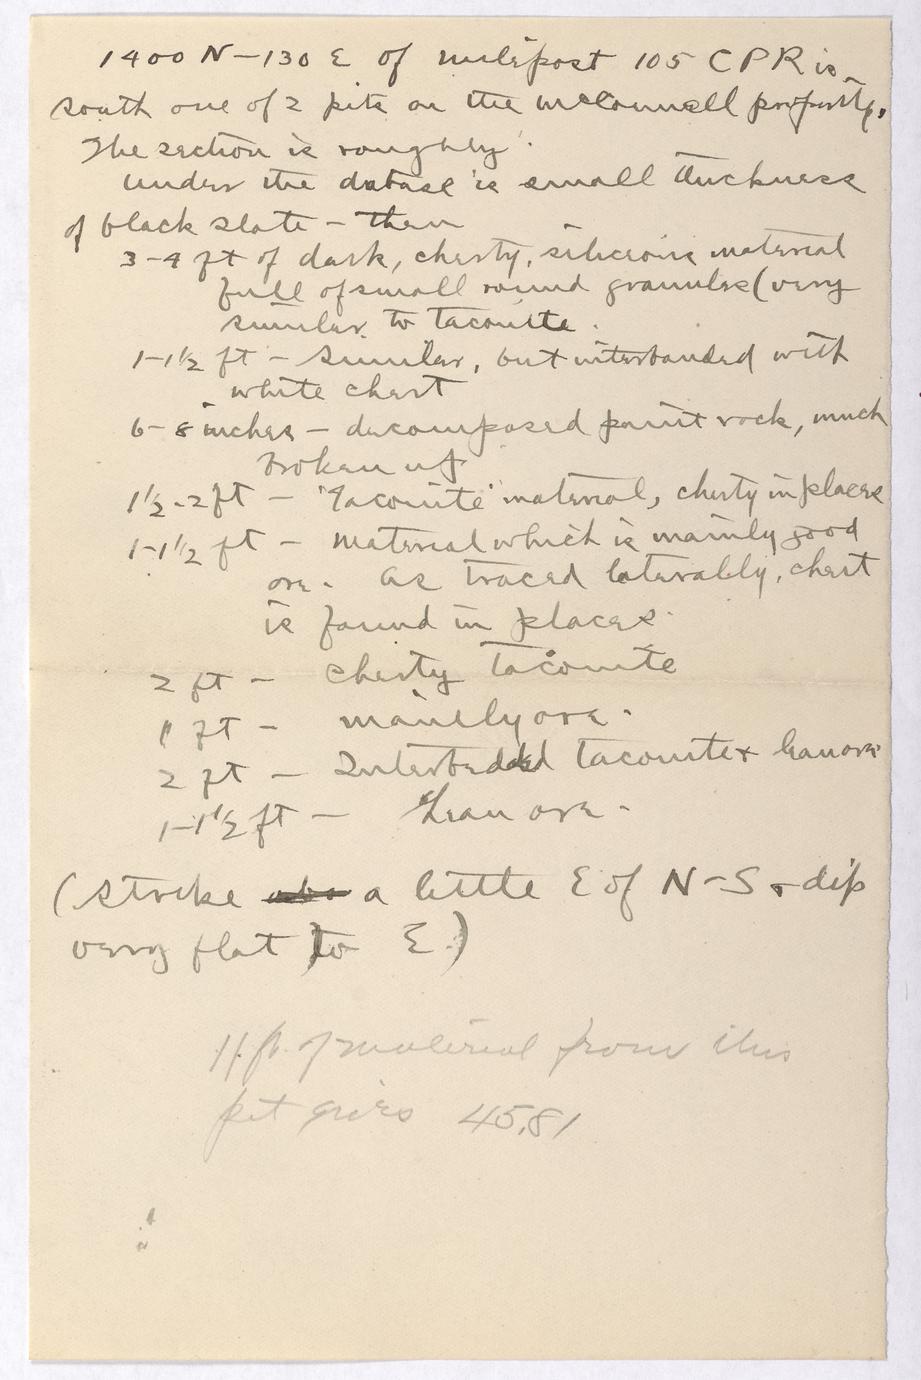 1400 N - 130 E of milepost 105 CPR is
south one of 2 pits on the McConnell property.
The section is roughly:
Under the diabase is small thickness
of black slate - then
3-4 ft of dark, cherty, siliceous material
full of small round granules (very
similar to taconite.
1-1½ ft - Similar, but interbanded with
white chert
6-8 inches - decomposed paint rock, much
broken up
1½-2 ft - "Taconite" material, cherty in places
1-1½ ft - Material which is mainly good
ore. As traced laterally, chert
is found in places.
2 ft - Cherty taconite
1 ft - mainly ore.
2 ft - Interbedded taconite + lean ore
1-1½ ft - Lean ore.
(Strike a little E of N-S + dip
very flat to E)
11 ft. of material from this
pit gives 45.81